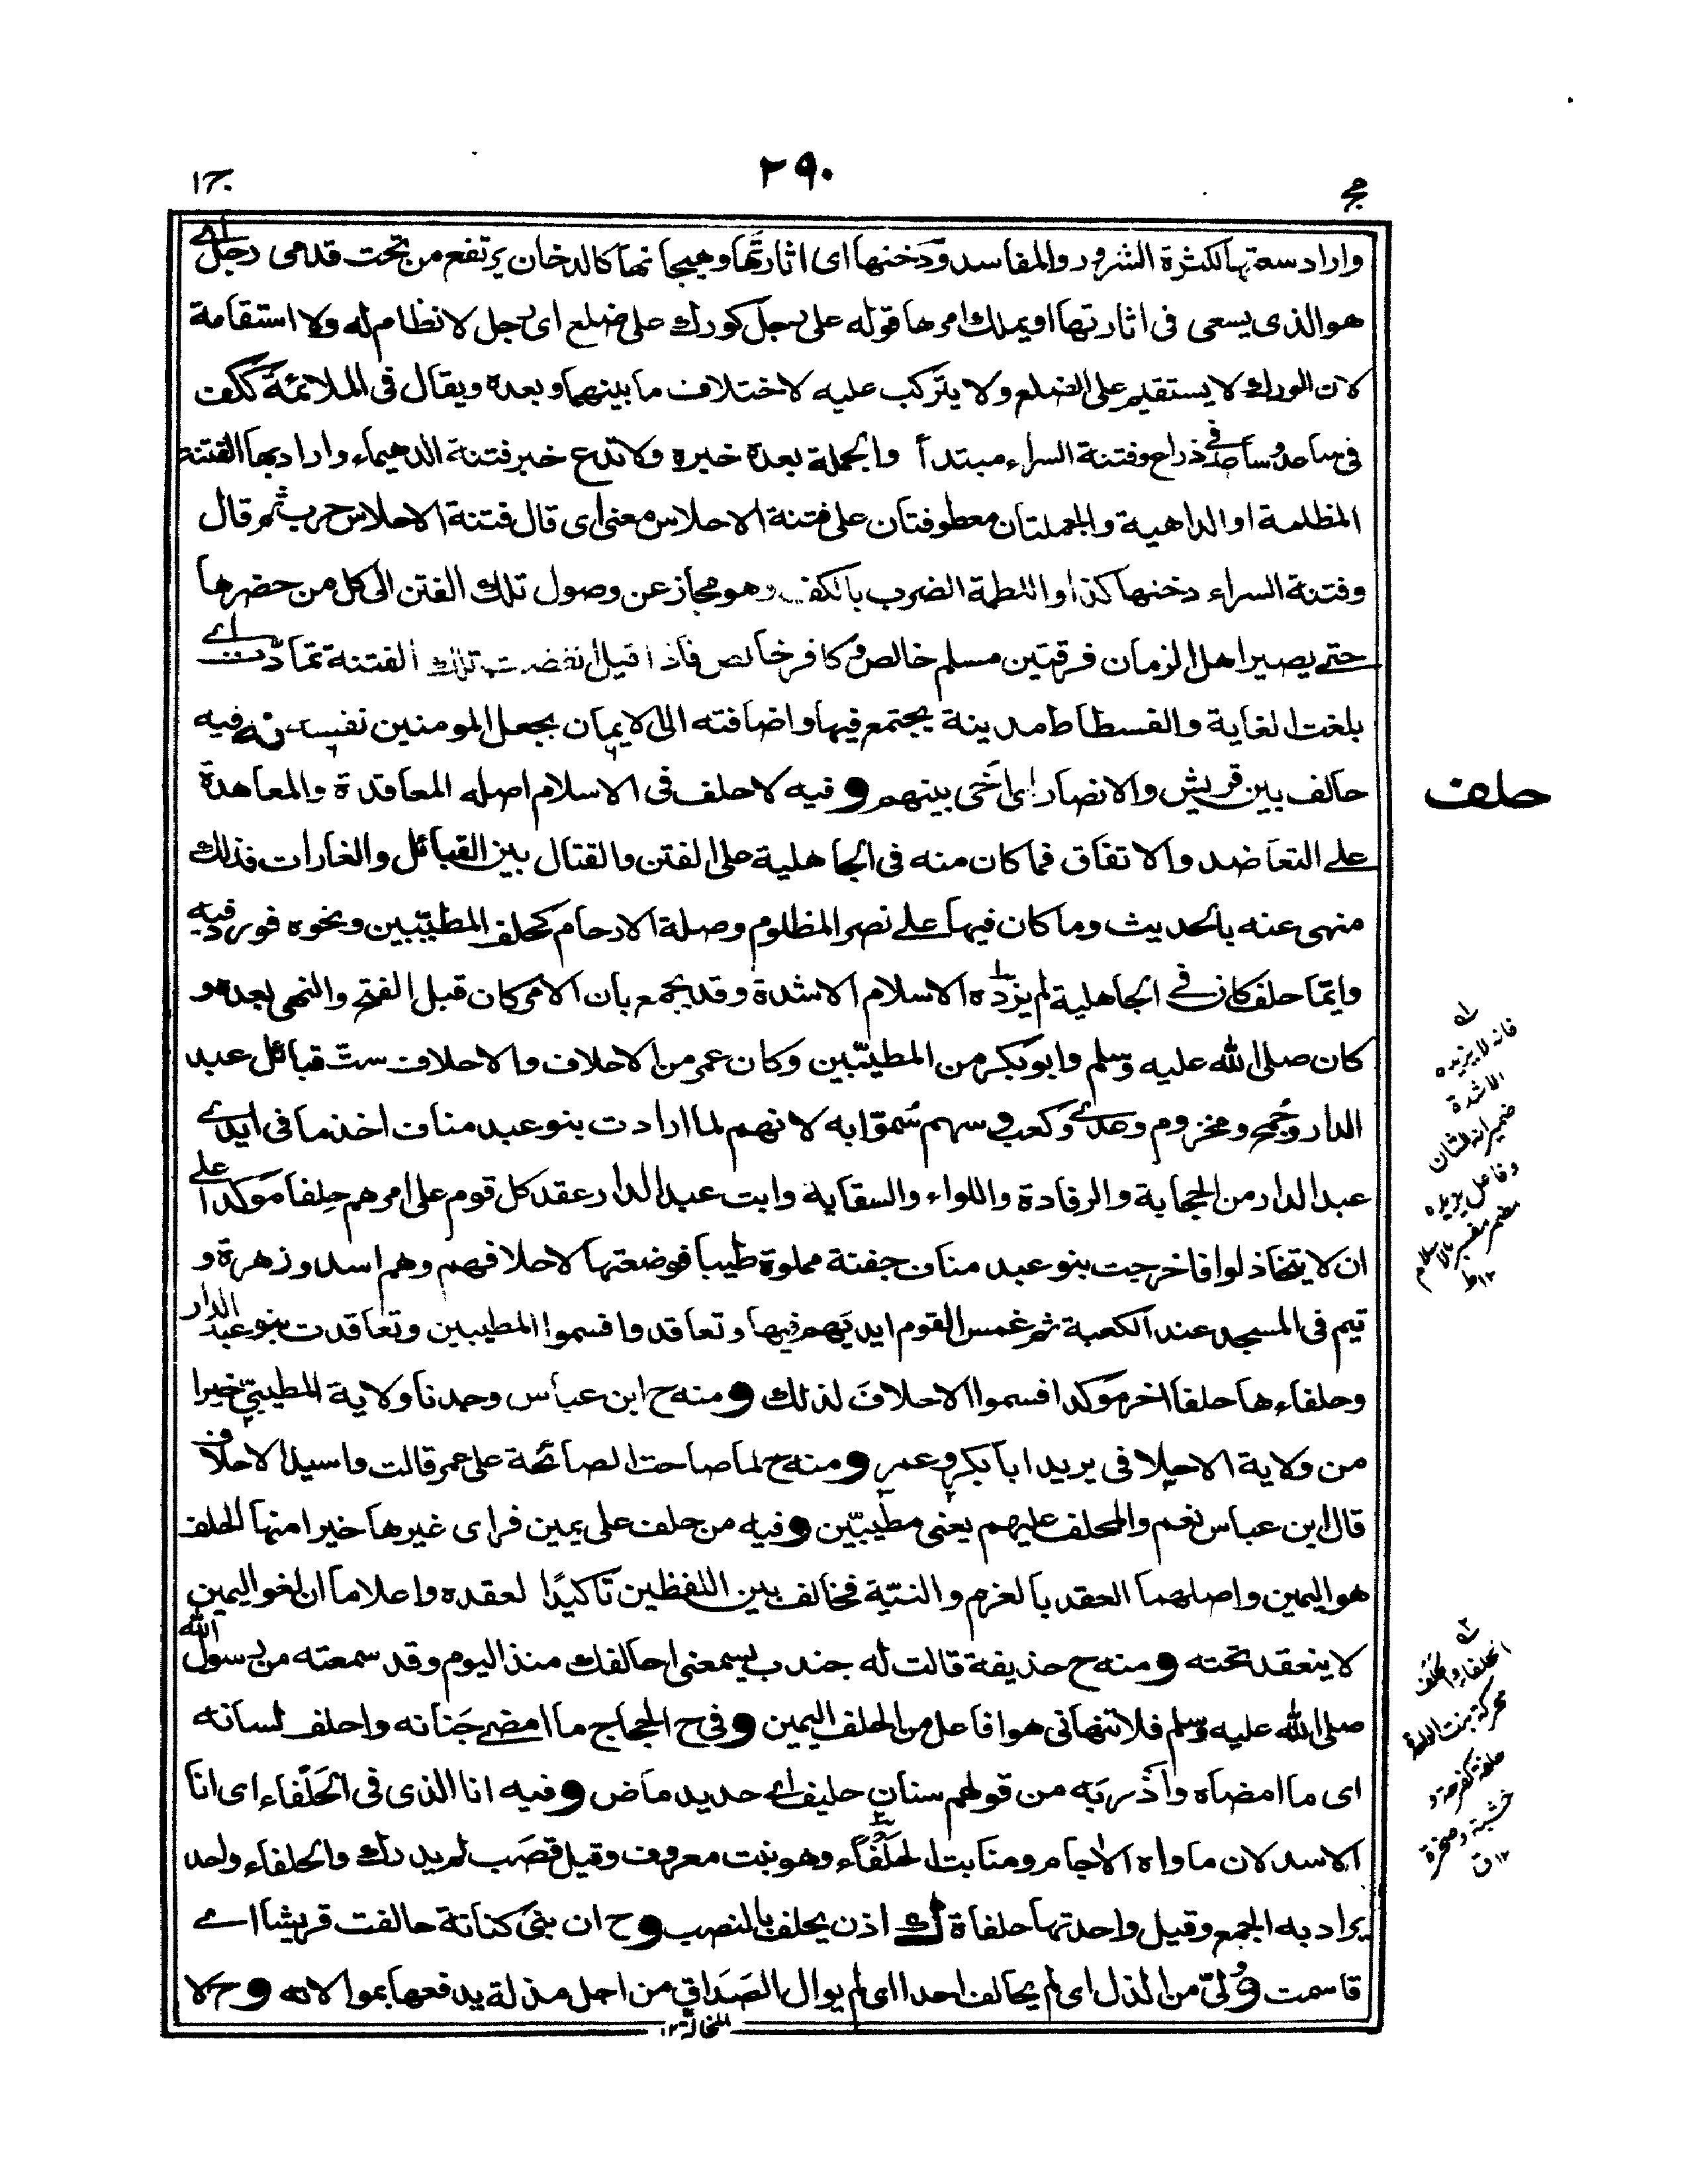 ج ١
٢٩٠
واراد سعتها لكثرة الشرور والمفاسد ودَخنها اى اثارتها وهيجانها كالدخان يرتفع من تحت قدمى رجل اے
هو الذى يسعى فى اثارتها او يملك امرها قوله على رجل كورك على ضلع اى رجل لا نظام له ولا استقامة
لان الورك لا يستقيم على الضلع ولا يتركب عليه لاختلاف ما بينهما وبعده ويقال فى الملائمة ككف
فى ساعد وساعد فى ذراع وفتنة السراء مبتدأ والجملة بعده خبره ولا تدع خبر فتنة الدهيماء واراد بها الفتنة
المظلمة او الداهية والجملتان معطوفتان على فتنة الاحلاس معنى اى قال فتنة الاحلاس حرب ثم قال
وفتنة السراء دخنها كذا واللطمة الضرب بالكف وهو مجاز عن وصول تلك الفتن الى كل من حضرها
حتے يصير اهل الزمان فرقتين مسلم خالص وكافر خالص فاذا قيل انقضت تلك الفتنة تمادّت اے
بلغت الغاية والفسطاط مدينة يجتمع فيها واضافته الى الايمان بجعل المومنين نفسه نه فيه
حالف بين قريش والانصار اى اٰخى بينهم و فيه لا حلف فى الاسلام اصله المعاقدة والمعاهدة
علے التعاضد والاتفاق فما كان منه فى الجاهلية على الفتن والقتال بين القبائل والغارات فذلك
منهى عنه بالحديث وما كان فيها علے نصر المظلوم وصلة الارحام كحلف المطيّبين ونحوه فورد فيه
وايّما حلف كان فے الجاهلية لم يزده الاسلام الا شدة وقد يجمع بان الامر كان قبل الفتح والنهى بعده و
كان صلى الله عليه وسلم وابو بكر من المطيّبين وكان عمر من الاحلاف والاحلاف ستّ قبائل عبد
الدار وجُمح ومخزوم وعدے وكعب وسهم سُمّوا به لانهم لما ارادت بنو عبد مناف اخذ ما فى ايدے
عبد الدار من الحجابة والرفادة واللواء والسقاية وابت عبد الدار عقد كل قوم على امرهم حِلفا مَوكدا علے
ان لا يتخاذلوا فاخرجت بنو عبد مناف جفنة مملوة طيبا فوضعتها لاحلافهم وهم اسد وزهرة و
تيم فى المسجد عند الكعبة ثم غمس القوم ايديَهم فيها وتعاقدوا فسموا المطيبين وتعاقدت بنو عبد الدار
وحلفاءها حلفا اخر موكدا فسموا الاحلافَ لذلك و منه ح ابن عباس وحدنا ولاية المطيبىّ خيرا
من ولاية الاحلافى يريد ابا بكر وعمر و منه ح لما صاحت الصائحة على عمر قالت واسيد الاحلاف
قال ابن عباس نعم والمحلف عليهم يعنى مطيّبين و فيه من حلف على يمين فراى غيرها خيرا منها الحلف
هو اليمين واصلهما العقد بالعزم والنيّة فخالف بين اللفظين تاكيدًا لعقده واعلاما ان لغو اليمين
لا ينعقد تحته و منه ح حذيفة قالت له جندب يسمعنى احالفك منذ اليوم وقد سمعته من رسول الله
صلى الله عليه وسلم فلا تنهانى هو افاعل من الحلف اليمين و فى ح الحجاج ما امضے جَنانه واحلف لسانه
اى ما امضاه واذربَه من قولهم سنان حليف اے حديد ماض و فيه انا الذى فى الحَلْفاء اى انا
الاسد لان ماواه الاٰجام ومنابت الحَلْفاء وهو نبت معروف وقيل قصَب لم يدرك والحلفاء واحد
يراد به الجمع وقيل واحدتها حلفاة ك اذن يحلف بالنصب و ح ان بنى كنانة حالفت قريشا اے
قاسمت و ولىّ من الذل اى لم يحالف احدا اى لم يوال الصَدَاق من اجل مذلة يدفعها بموالاته و ح لا
حلف
فانه لا يزيده
الا شدة
ضمير انه للشان
وفاعل يزيده
مضمر مفسر بالاسلام
١٢ ط
الحلفاء والحلف
محركة نبت الواحدة
حلفة كفرحة و
خشبة وصخرة
١٢ ق